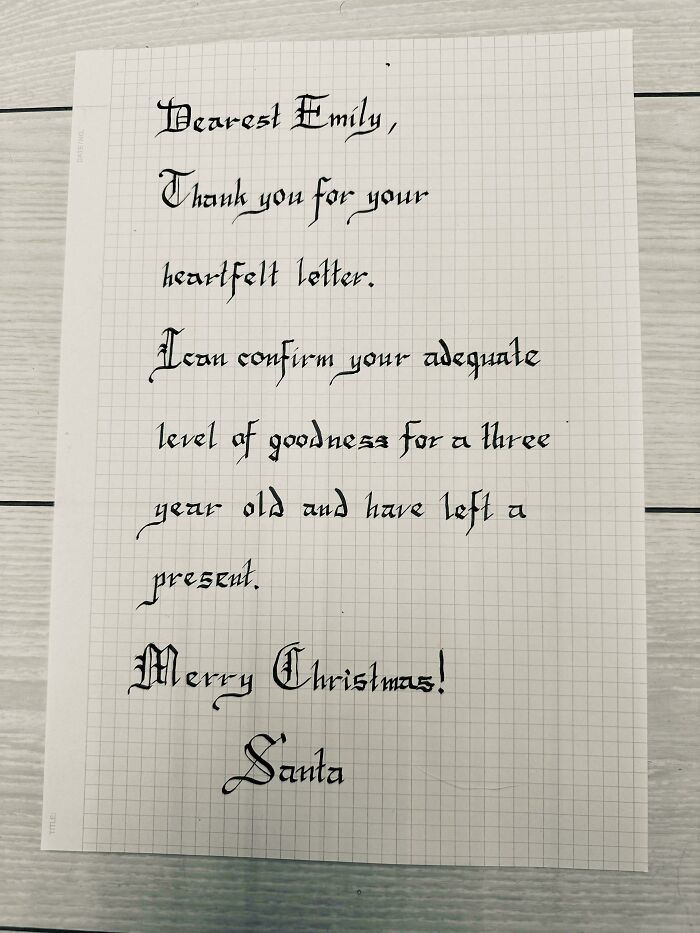 Dearest Emily,
Thank you for your
heartfelt letter.
I can confirm your adequate
level of goodness for a three
year old and have left a
present.
Merry Christmas!
Santa
DATE/NO.
TITLE: